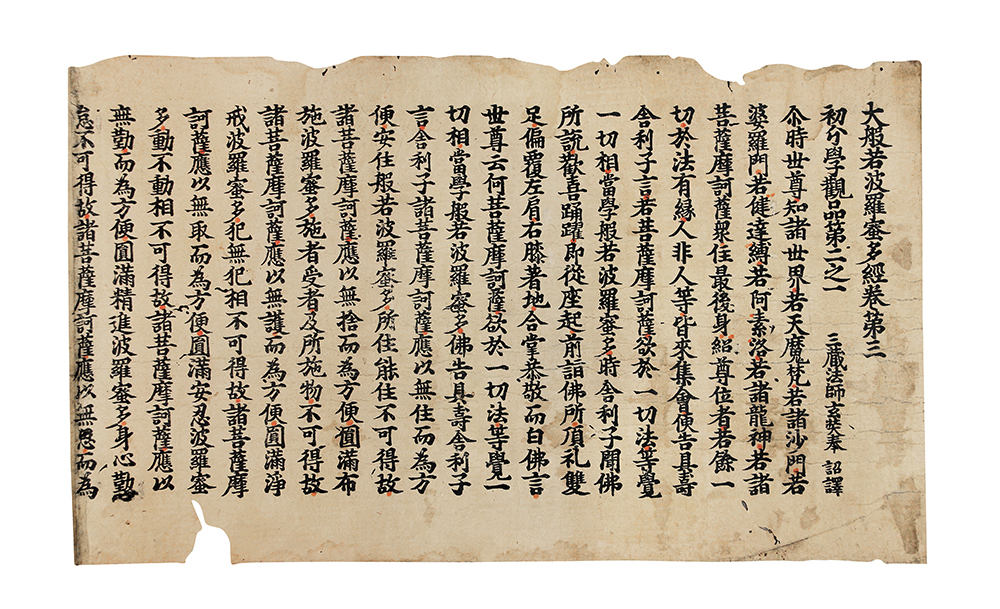 大般若波羅蜜多經卷第三
初分學觀品第二之一 三藏法師玄奘奉 詔譯
尒時世尊知諸世界若天魔梵若諸沙門若
婆羅門若健達縛若阿素洛若諸龍神若諸
菩薩摩訶薩衆住最後身紹尊位者若餘一
切於法有緣人非人等皆來集會便告具壽
舍利子言若菩薩摩訶薩欲於一切法等覺
一切相當學般若波羅蜜多時舍利子聞佛
所說歡喜踊躍即從座起前詣佛所頂礼雙
足偏覆左肩右膝著地合掌恭敬而白佛言
世尊云何菩薩摩訶薩欲於一切法等覺一
切相當學般若波羅蜜多佛告具壽舍利子
言舍利子諸菩薩摩訶薩應以無住而為方
便安住般若波羅蜜多所住能住不可得故
諸菩薩摩訶薩應以無捨而為方便圓滿布
施波羅蜜多施者受者及所施物不可得故
諸菩薩摩訶薩應以無護而為方便圓滿淨
戒波羅蜜多犯無犯相不可得故諸菩薩摩
訶薩應以無取而為方便圓滿安忍波羅蜜
多動不動相不可得故諸菩薩摩訶薩應以
無勤而為方便圓滿精進波羅蜜多身心勤
怠不可得故諸菩薩摩訶薩應以無思而為